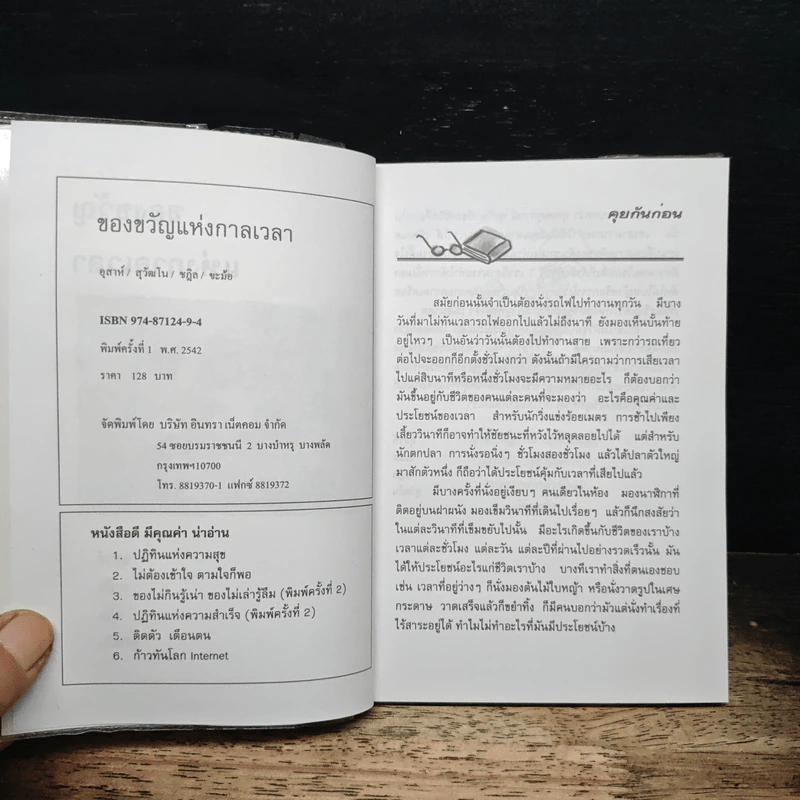 ของขวัญแห่งกาลเวลา
อุสาห์ / สุวัฒโน / ชฎิล / ขะม้อ
ISBN 974-87124-9-4
พิมพ์ครั้งที่ 1 พ.ศ. 2542
ราคา 128 บาท
จัดพิมพ์โดย บริษัท อินทรา เน็ตคอม จำกัด
54 ซอยบรมราชชนนี 2 บางบำหรุ บางพลัด
กรุงเทพฯ10700
โทร. 8819370-1 แฟกซ์ 8819372
หนังสือดี มีคุณค่า น่าอ่าน
1. ปฏิทินแห่งความสุข
2. ไม่ต้องเข้าใจ ตามใจก็พอ
3. ของไม่กินรู้เน่า ของไม่เล่ารู้ลืม (พิมพ์ครั้งที่ 2)
4. ปฏิทินแห่งความสำเร็จ (พิมพ์ครั้งที่ 2)
5. ติดตัว เตือนตน
6. ก้าวทันโลก Internet
คุยกันก่อน
สมัยก่อนนั้นจำเป็นต้องนั่งรถไฟไปทำงานทุกวัน มีบาง
วันที่มาไม่ทันเวลารถไฟออกไปแล้วไม่ถึงนาที ยังมองเห็นบั้นท้าย
อยู่ไหวๆ เป็นอันว่าวันนั้นต้องไปทำงานสาย เพราะกว่ารถเที่ยว
ต่อไปจะออกก็อีกตั้งชั่วโมงกว่า ดังนั้นถ้ามีใครถามว่าการเสียเวลา
ไปแค่สิบนาทีหรือหนึ่งชั่วโมงจะมีความหมายอะไร ก็ต้องบอกว่า
มันขึ้นอยู่กับชีวิตของคนแต่ละคนที่จะมองว่า อะไรคือคุณค่าและ
ประโยชน์ของเวลา สำหรับนักวิ่งแข่งร้อยเมตร การช้าไปเพียง
เสี้ยววินาทีก็อาจทำให้ชัยชนะที่หวังไว้หลุดลอยไปได้ แต่สำหรับ
นักตกปลา การนั่งรอนิ่งๆ ชั่วโมงสองชั่วโมง แล้วได้ปลาตัวใหญ่
มาสักตัวหนึ่ง ก็ถือว่าได้ประโยชน์คุ้มกับเวลาที่เสียไปแล้ว
มีบางครั้งที่นั่งอยู่เงียบๆ คนเดียวในห้อง มองนาฬิกาที่
ติดอยู่บนฝาผนัง มองเข็มวินาทีที่เดินไปเรื่อยๆ แล้วก็นึกสงสัยว่า
ในแต่ละวินาทีที่เข็มขยับไปนั้น มีอะไรเกิดขึ้นกับชีวิตของเราบ้าง
เวลาแต่ละชั่วโมง แต่ละวัน แต่ละปีที่ผ่านไปอย่างรวดเร็วนั้น มัน
ได้ให้ประโยชน์อะไรแก่ชีวิตเราบ้าง บางทีเราทำสิ่งที่ตนเองชอบ
เช่น เวลาที่อยู่ว่างๆ ก็นั่งมองต้นไม้ใบหญ้า หรือนั่งวาดรูปในเศษ
กระดาษ วาดเสร็จแล้วก็ขยำทิ้ง ก็มีคนบอกว่ามัวแต่นั่งทำเรื่องที่
ไร้สาระอยู่ได้ ทำไมไม่ทำอะไรที่มันมีประโยชน์บ้าง